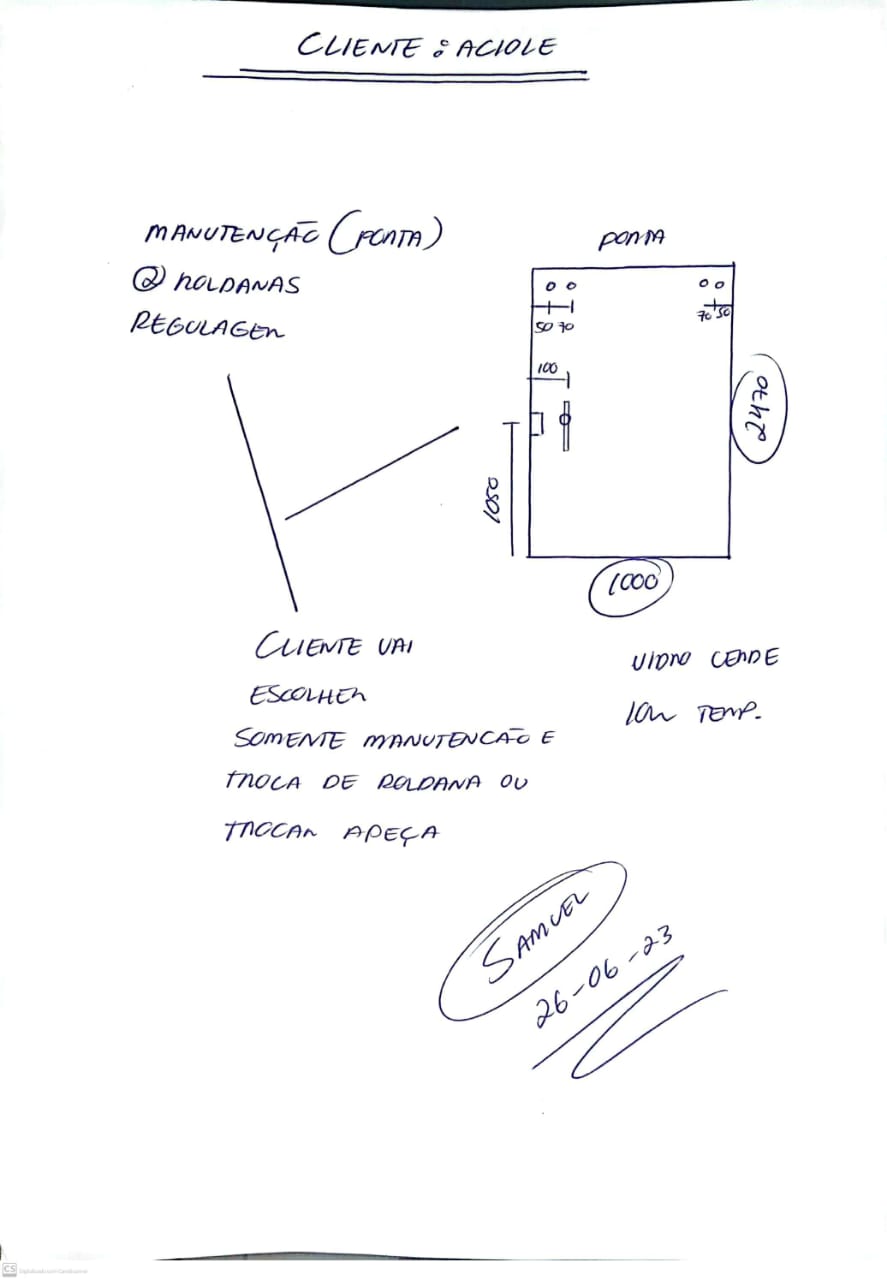 CLIENTE : ACIOLE
MANUTENÇÃO (PORTA)
② ROLDANAS
REGULAGEM
PORTA
50 70
70 50
100
2470
1050
1000
CLIENTE VAI
ESCOLHER
SOMENTE MANUTENCÃO E
TROCA DE ROLDANA OU
TROCAR APEÇA
VIDRO
TEMP.
SAMUEL
26-06-23
CS